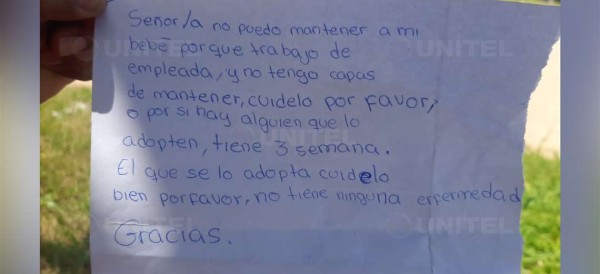 Señor/a no puedo mantener a mi
bebé porque trabajo de
empleada, y no tengo capas
de mantener, cuidelo por favor,
o por si hay alguien que lo
adopten, tiene 3 semana.
El que se lo adopta cuidelo
bien por favor, no tiene ninguna enfermedad
Gracias.
UNITEL
UNITEL
UNITEL
UNITEL
UNITEL